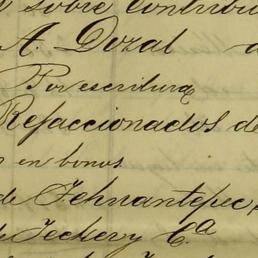 sobre Contribu
A. Dozal
Por escritura
Refaccionados de
en bonos
de Tehuantepec
de Jeckery Cª